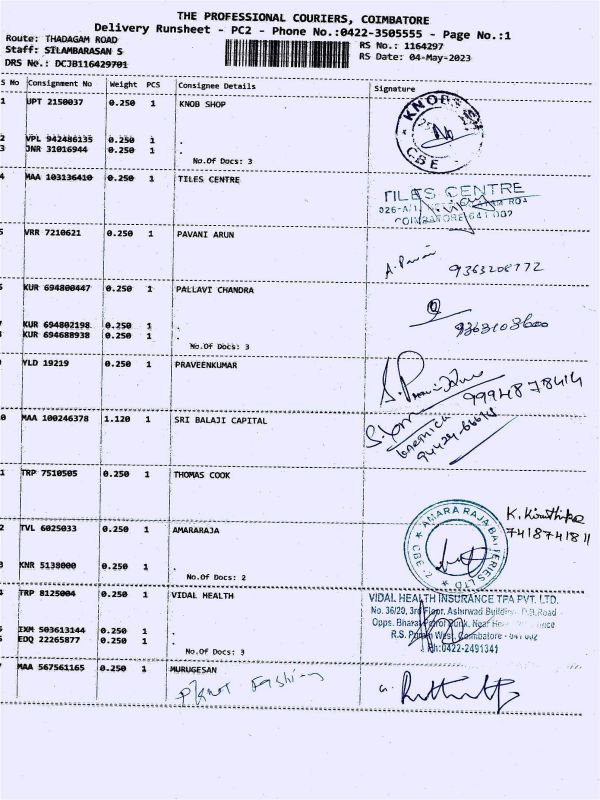 THE PROFESSIONAL COURIERS, COIMBATORE
Delivery Runsheet - PC2 - Phone No.:0422-3505555 - Page No.:1
Route: THADAGAM ROAD
RS No.: 1164297
Staff: SILAMBARASAN S
RS Date: 04-May-2023
DRS No.: DCJB116429701
S No Consignment No Weight PCS Consignee Details Signature
1 UPT 2150037 0.250 1 KNOB SHOP
KNOB
CBE
2 VPL 942486135 0.250 1 .
3 JNR 31016944 0.250 1 .
No.Of Docs: 3
4 MAA 103136410 0.250 1 TILES CENTRE
TILES CENTRE
COIMBATORE 641 002
5 VRR 7210621 0.250 1 PAVANI ARUN
9363208772
6 KUR 694800447 0.250 1 PALLAVI CHANDRA
7 KUR 694802198 0.250 1 .
8 KUR 694688938 0.250 1 .
No.Of Docs: 3
9 YLD 19219 0.250 1 PRAVEENKUMAR
9994878414
0 MAA 100246378 1.120 1 SRI BALAJI CAPITAL
1 TRP 7510505 0.250 1 THOMAS COOK
K. Kiruthika
7418741811
2 TVL 6025033 0.250 1 AMARARAJA
AMARA RAJA BATTERIES LTD
CBE-2
3 KNR 5138000 0.250 1 .
No.Of Docs: 2
4 TRP 8125004 0.250 1 VIDAL HEALTH
VIDAL HEALTH INSURANCE TPA PVT. LTD.
No. 36/20, 3rd Floor, Ashirwad Building, D.B.Road
Opps. Bharat Petrol Bunk, Near
R.S. Puram West, Coimbatore - 641 002
Ph:0422-2491341
5 EXM 503613144 0.250 1 .
6 EDQ 22265877 0.250 1 .
No.Of Docs: 3
7 MAA 567561165 0.250 1 MURUGESAN